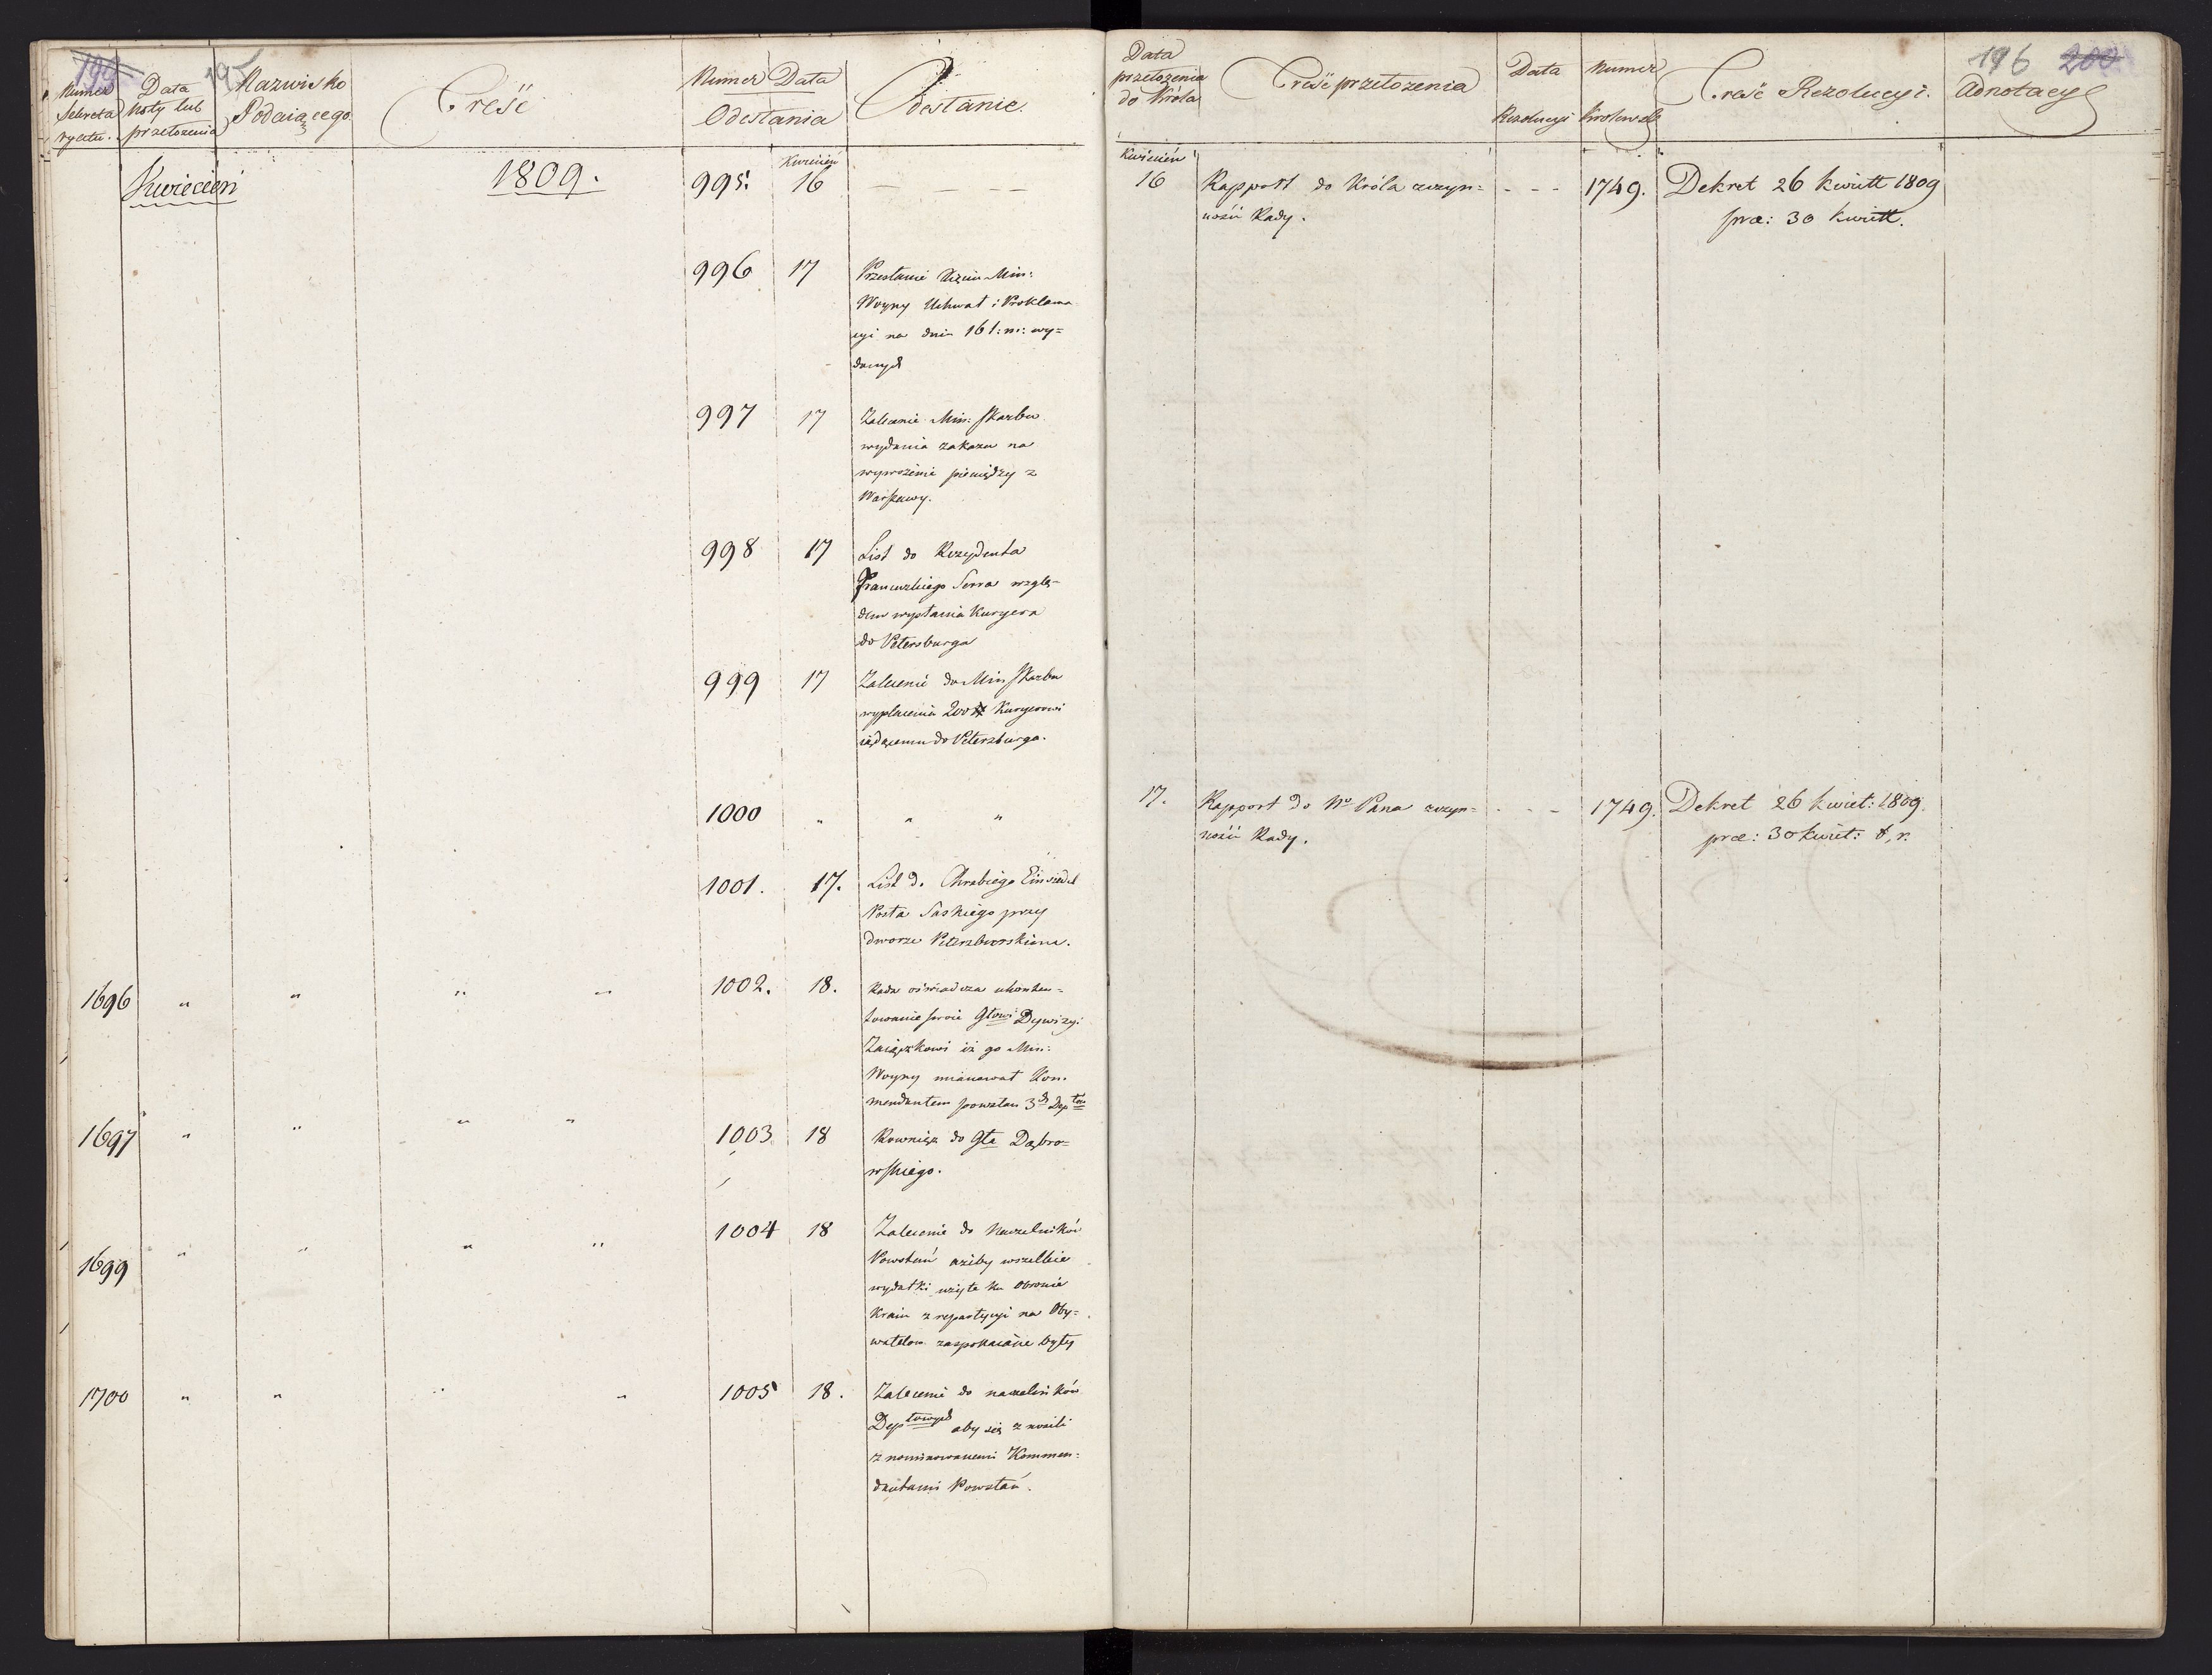 199 195
Numer Sekreta ryatu.
Data Noty lub przełożenia
Nazwisko Podaiącego
Treść
Numer Data
Odesłania
Odesłanie
Kwiecień
1809.
Kwiecień
995. 16 — — — —
996 17 Przesłanie Xięciu Min:
Woyny Uchwał i Proklama
cyi na dniu 16 t: m: wy=
danych
997 17 Zalecenie Min: Skarbu
wydania zakazu na
wywożenie pieniędzy z
Warszawy.
998 17 List do Rezydenta
Francuzkiego Serra wzglę=
dem wysłania Kuryera
do Petersburga
999 17 Zalecenie do Min Skarbu
wypłacenia 200 # Kuryerowi
iadącemu do Petersburga.
1000 " " "
1001. 17. List do Hrabiego Einsiedel
Posła Saskiego przy
dworze Petersburskim.
1696 " " " " 1002. 18. Rada oświadcza ukonten=
towanie swoie Głowi Dywizyi
Zaiączkowi iż go Min:
Woyny mianował Kom=
mendantem powstań 3ch Deptów
1697 " " " " 1003 18 Rownież do Gła Dąbro=
wskiego.
1699 " " " " 1004 18 Zalecenie do Naczelników
Powstań ażeby wszelkie
wydatki użyte ku obronie
Kraiu z repartycyi na Oby=
watelow zaspokaiane były
1700 " " " " 1005 18. Zalecenie do naczelników
Deptowych aby się znosili
z nominowanemi Kommen=
dantami Powstań.
196 200
Data przełożenia do Króla
Treść przełożenia
Data Rezolucyi
Numer Krolewski
Treść Rezolucyi.
Adnotacye
Kwiecień
16 Rapport do Króla z czyn= - - - 1749. Dekret 26 kwiett 1809
ności Rady. præ: 30 kwiett.
17. Rapport do No Pana z czyn= - - - 1749. Dekret 26 kwiet: 1809.
ności Rady. præ: 30 kwiet: t, r.